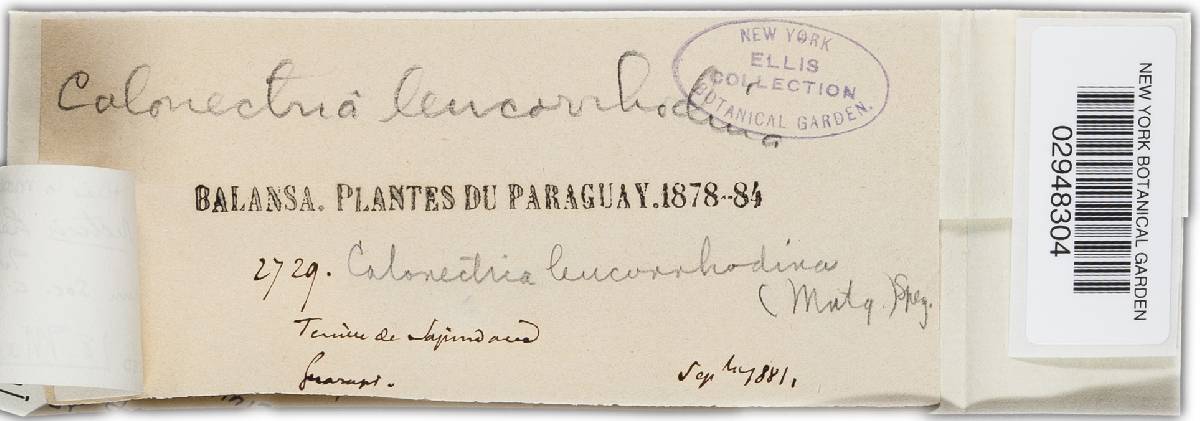 Calonectria leucorrhodina
NEW YORK
ELLIS
COLLECTION
BOTANICAL GARDEN.
BALANSA. PLANTES DU PARAGUAY. 1878-84
2729. Calonectria leucorrhodina
(Mntg.) Speg.
de
Guarapi. Sep 1881.
NEW YORK BOTANICAL GARDEN
02948304